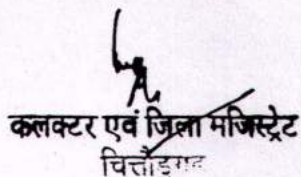 कलक्टर एवं जिला मजिस्ट्रेट
चित्तौड़गढ़